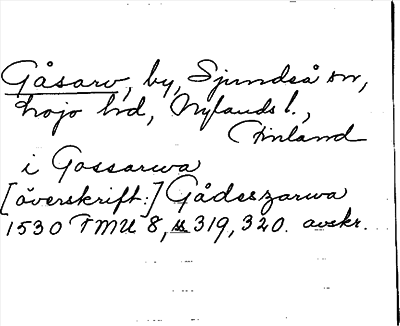 Gåsarv, by, Sjundeå sn,
Lojo hd, Nylands l.,
Finland
i Gossarwa
[överskrift:] Gådeszarwa
1530 FMU 8, ss 319, 320. avskr.